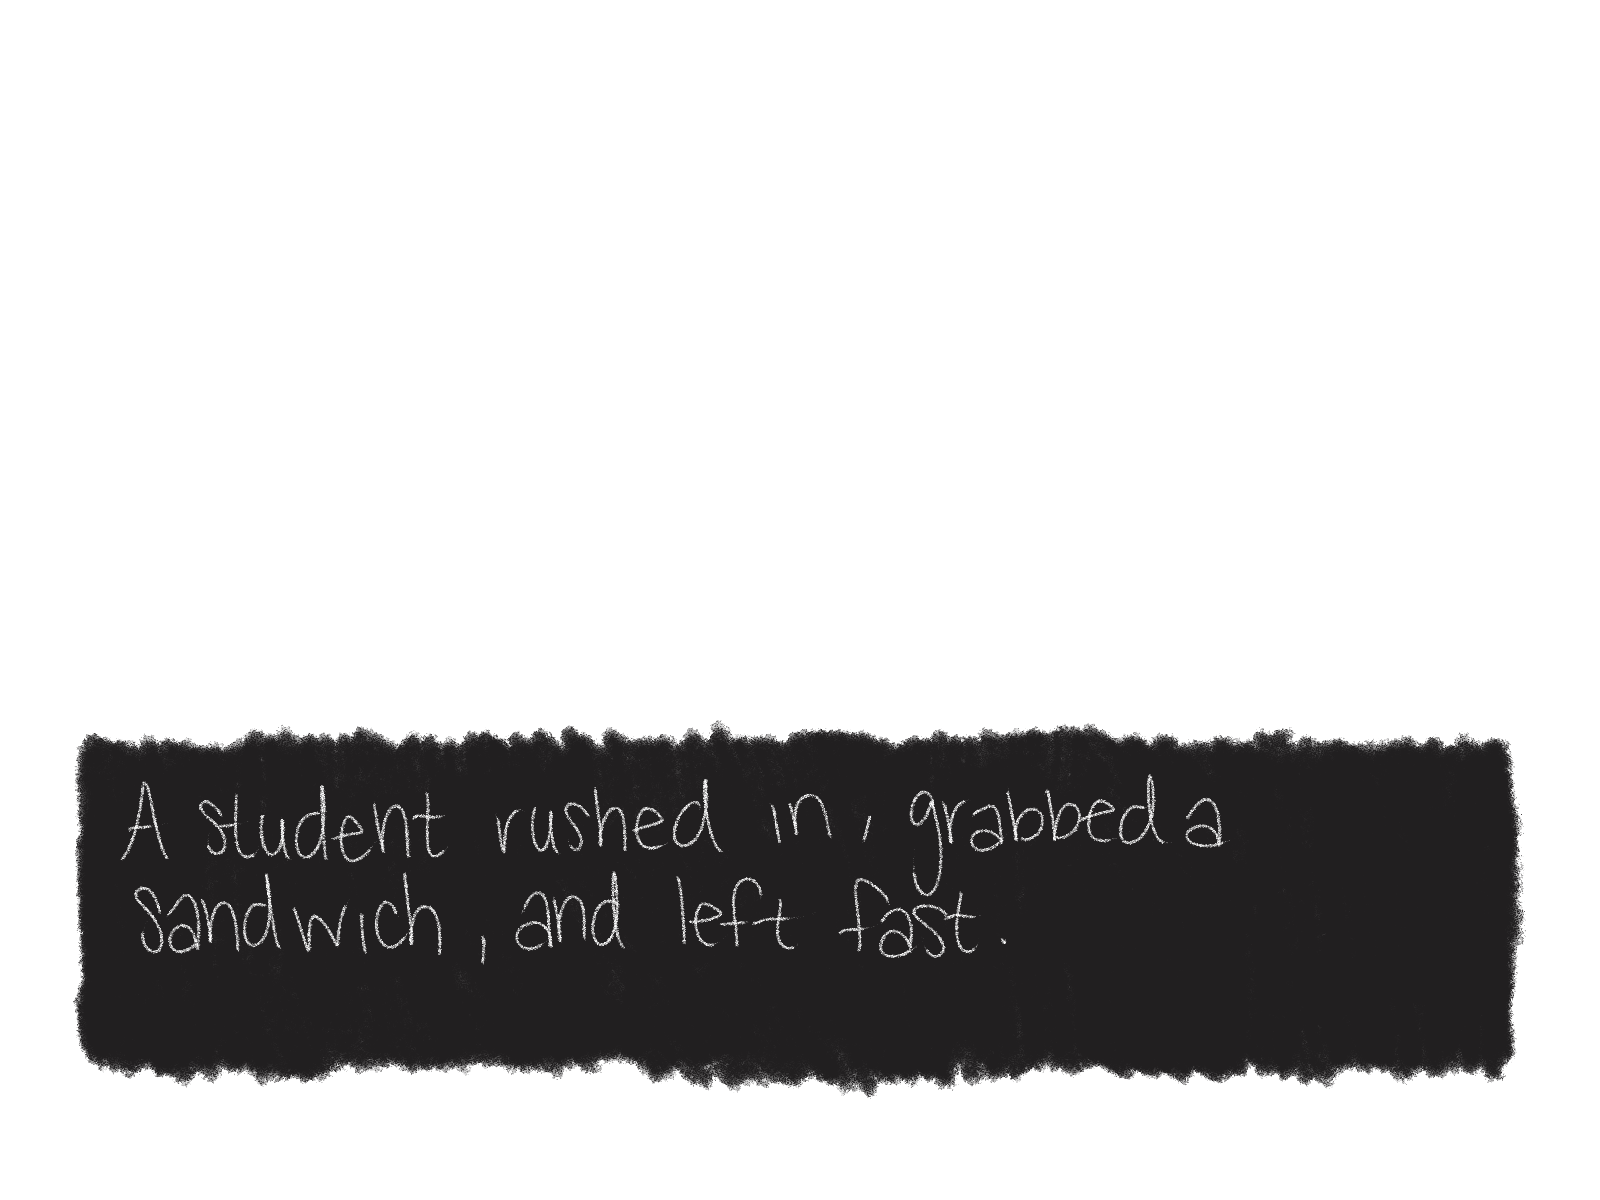 A student rushed in, grabbed a
sandwich, and left fast.